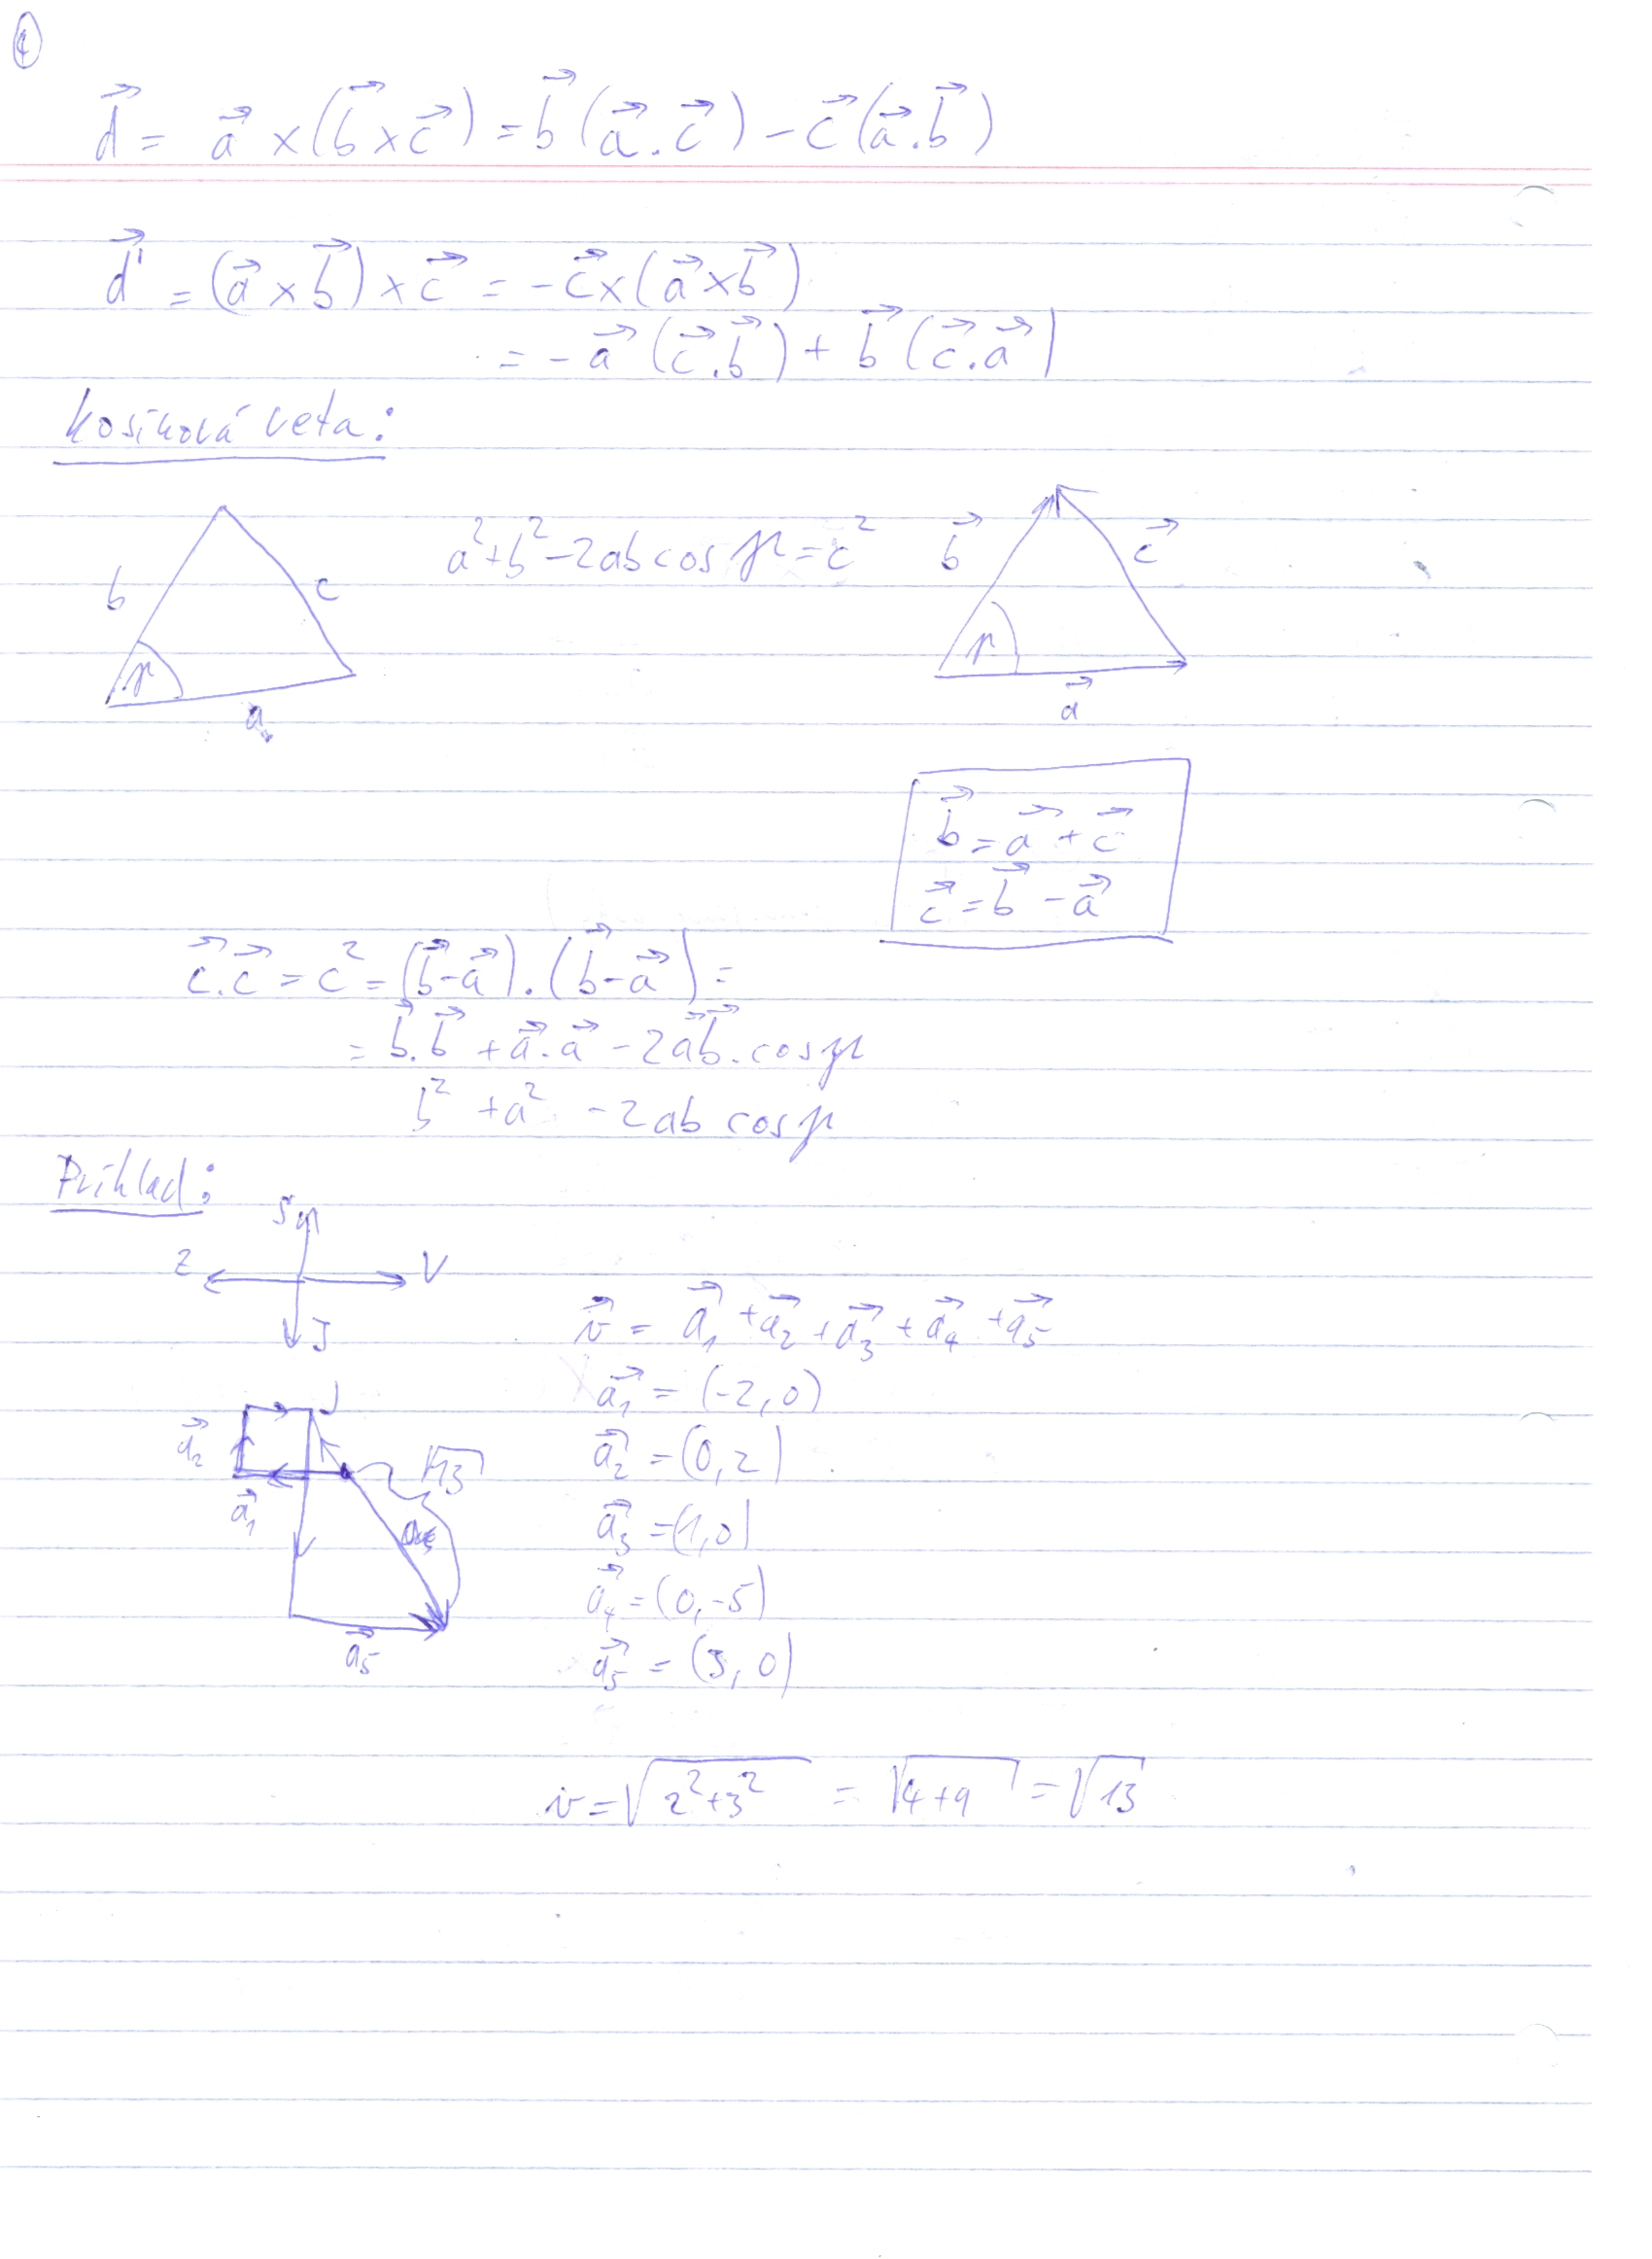 d⃗ = a⃗ × (b⃗ × c⃗) = b⃗ (a⃗ . c⃗) − c⃗ (a⃗ . b⃗)
d⃗' = (a⃗ × b⃗) × c⃗ = − c⃗ × (a⃗ × b⃗)
= − a⃗ (c⃗ . b⃗) + b⃗ (c⃗ . a⃗)
Kosínová veta:
b c γ a
a² + b² − 2ab cos γ = c²
b⃗ c⃗ γ a⃗
b⃗ = a⃗ + c⃗
c⃗ = b⃗ − a⃗
c⃗ . c⃗ = c² = (b⃗ − a⃗) . (b⃗ − a⃗) =
= b⃗ . b⃗ + a⃗ . a⃗ − 2a⃗b⃗ . cos γ
b² + a² − 2ab cos γ
Príklad:
S
Z V
J
v⃗ = a⃗₁ + a⃗₂ + a⃗₃ + a⃗₄ + a⃗₅
a⃗₁ = (−2, 0)
a⃗₂ a⃗₂ = (0, 2)
√13
a⃗₁
a⃗₃ = (1, 0)
a⃗₄ = (0, −5)
a⃗₅ a⃗₅ = (3, 0)
v = √2² + 3² = √4 + 9 = √13